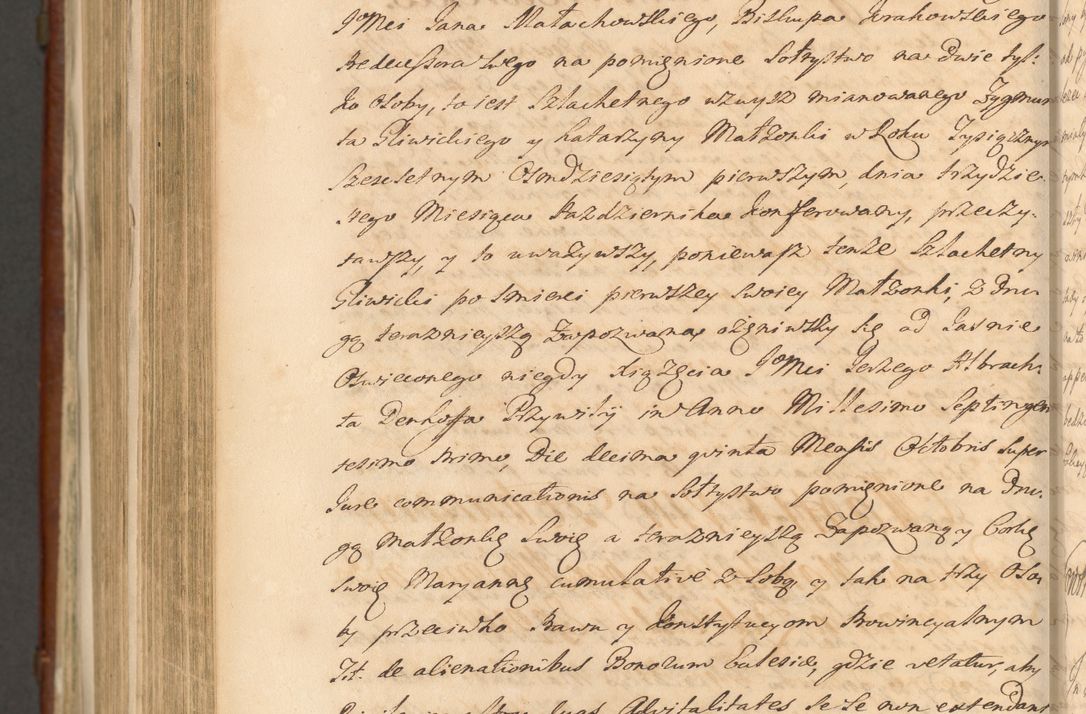 JoMci Jana Małachowskiego, Biskupa Krakowskiego
Predecessora swego na pomięnione Sołtystwo na Dwie tyl:
ko Osoby, to iest Szlachetnego wzwysz mianowanego Zygmun
ta Gliwickiego y Katarzyny Małżonki w Roku Tysiącznym
Szescsetnym Osmdziesiątym pierwszym, dnia trzydzie:
stego Miesiąca Października Konferowany, przeczy:
tawszy, y to uważywszy, poniewasz tenże Szlachetny
Gliwicki po śmierci pierwszey swoiey Małżonki, z Dru:
gą teraznieyszą Zapozwaną ożęniwszy się od Jaśnie
Oswieconego niegdy Xiążęcia JoMci Jerzego Albrach:
ta Denhoffa Przywiley in Anno Millesimo Septingen
tesimo trimo, Die decima quinta Mensis Octobris super
Jure communicationis na Sołtystwo pomięnione na Dru:
gą małżonkę swoię a teraznieyszą Zapozwaną y Corkę
swoię Maryannę cumulative z Sobą y tak na trzy Oso:
by przeciwko Prawu y Konstytucyom Prowincyalnym
Tit. de alienationibus Bonorum Ecclesiæ, gdzie vetatur, aby
Advitalitates se se non extendant